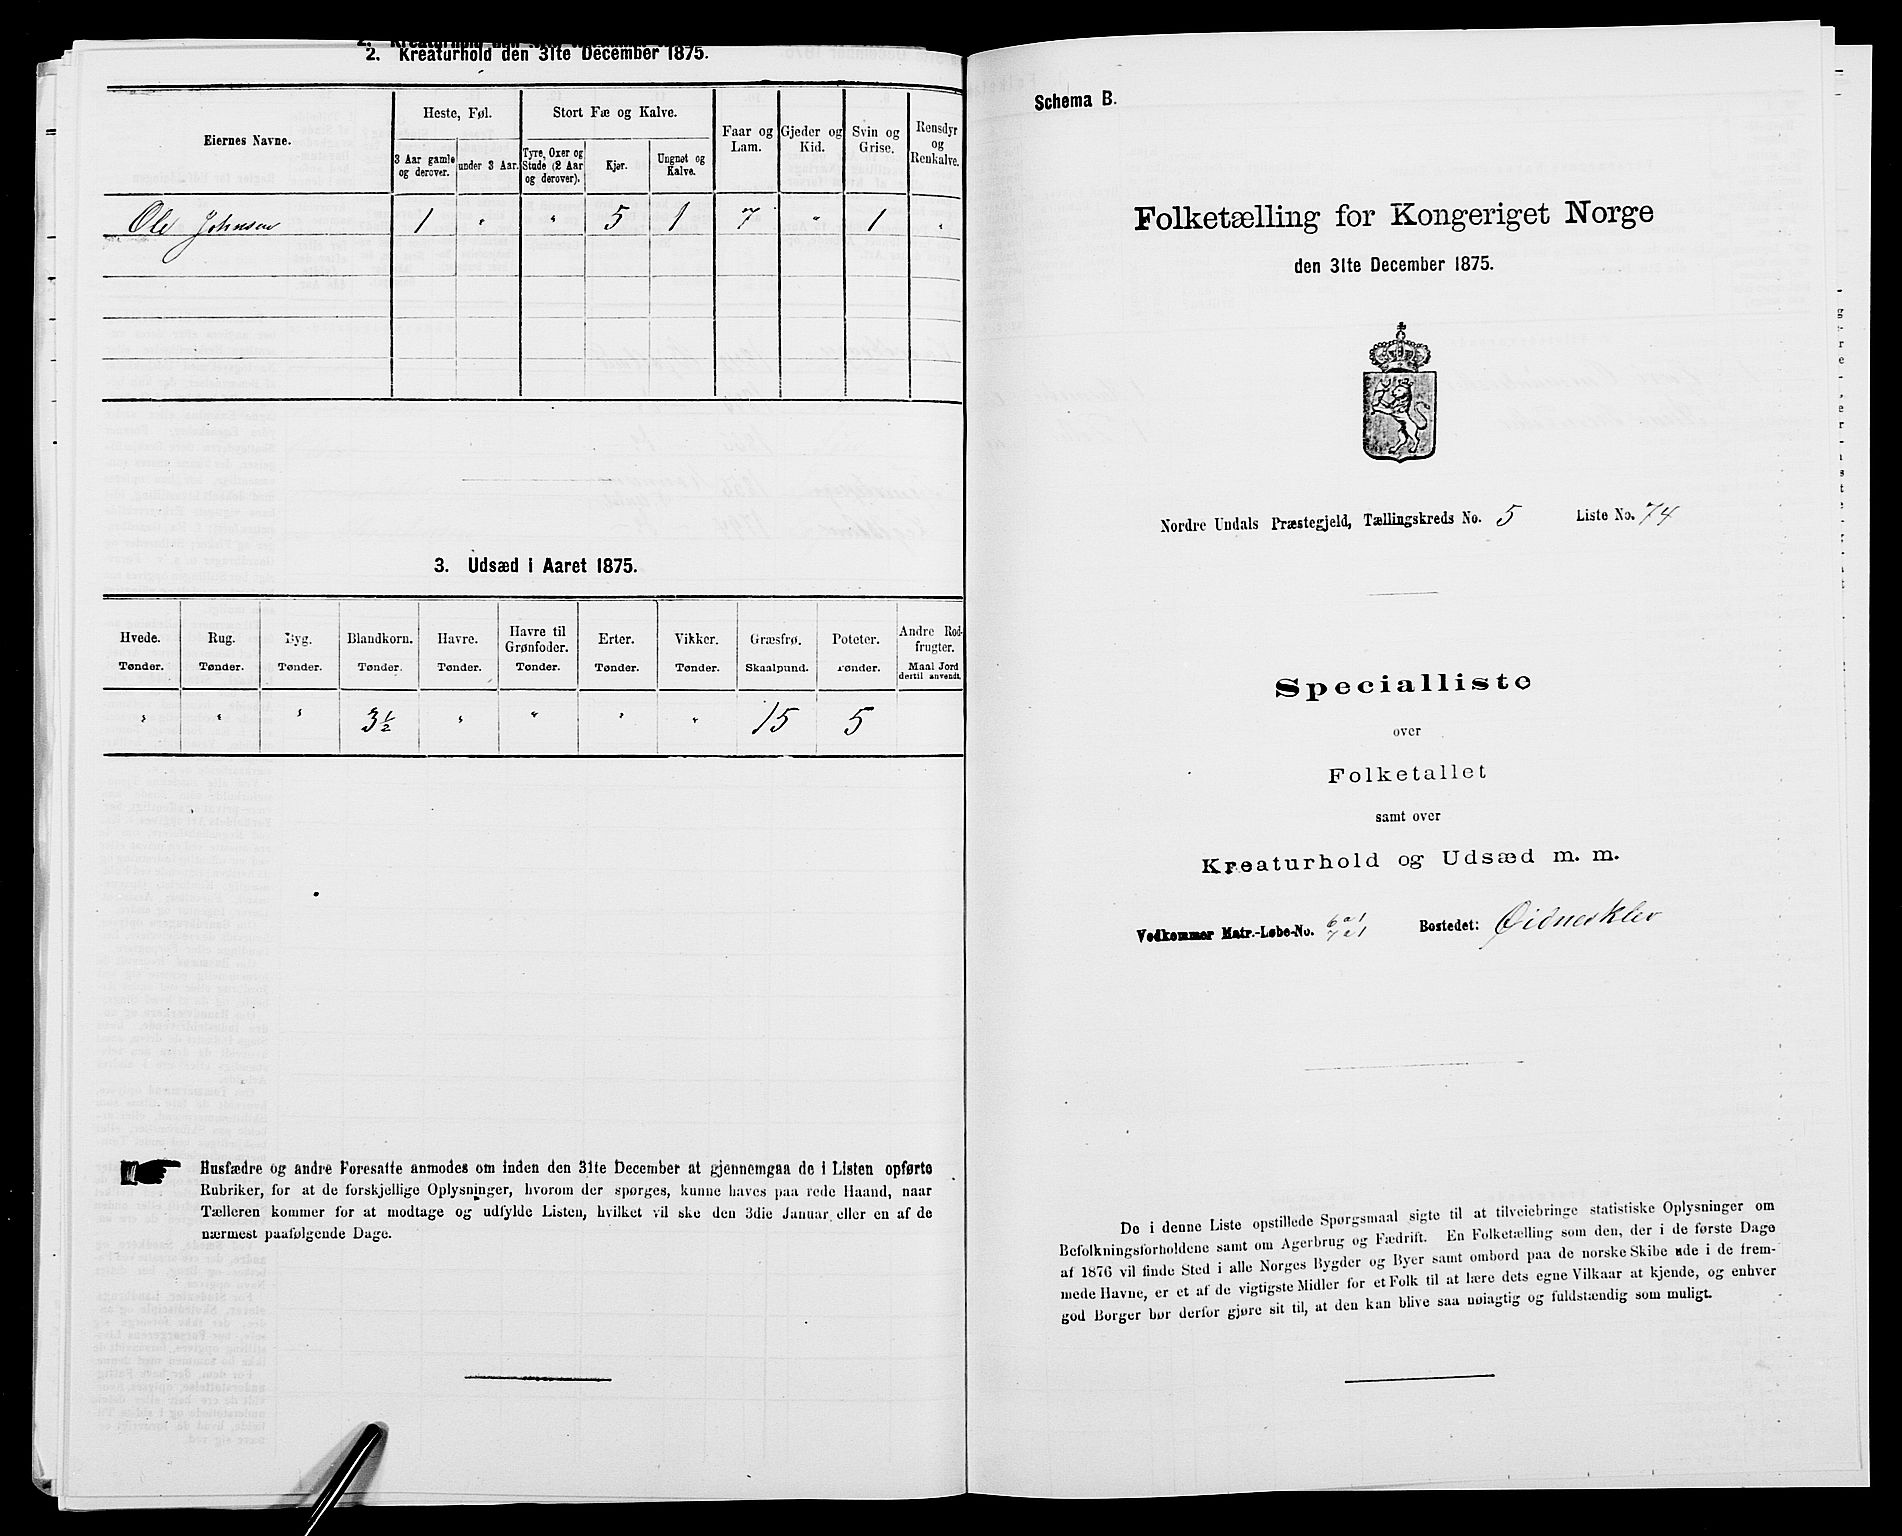 2. Kreaturhold den 31te December 1875.
Eiernes Navne.
Heste, Føl.
Stort Fæ og Kalve.
Faar og Lam.
Gjeder og Kid.
Svin og Grise.
Rensdyr og Renkalve.
3 Aar gamle og derover.
under 3 Aar.
Tyre, Oxer og Stude (2 Aar og derover).
Kjør.
Ungnøt og Kalve.
Ole Johnsen 1 " " 5 1 7 " 1 "
3. Udsæd i Aaret 1875.
Hvede. Rug. Byg. Blandkorn. Havre. Havre til Grønfoder. Erter. Vikker. Græsfrø. Poteter. Andre Rodfrugter.
Tønder. Tønder. Tønder. Tønder. Tønder. Tønder. Tønder. Tønder. Skaalpund. Tønder. Maal Jord dertil anvendt.
" " " 3 1/2 " " " " 15 5
Husfædre og andre Foresatte anmodes om inden den 31te December at gjennemgaa de i Listen opførte
Rubriker, for at de forskjellige Oplysninger, hvorom der spørges, kunne haves paa rede Haand, naar
Tælleren kommer for at modtage og udfylde Listen, hvilket vil ske den 3die Januar eller en af de
nærmest paafølgende Dage.
Schema B.
Folketælling for Kongeriget Norge
den 31te December 1875.
Nordre Undals Præstegjeld, Tællingskreds No. 5 Liste No. 74
Specialliste
over
Folketallet
samt over
Kreaturhold og Udsæd m. m.
Vedkommer Matr.-Løbe-No. 6 a 1
7 a 1
Bostedet: Øidnesklev
De i denne Liste opstillede Spørgsmaal sigte til at tilveiebringe statistiske Oplysninger om
Befolkningsforholdene samt om Agerbrug og Fædrift. En Folketælling som den, der i de første Dage
af 1876 vil finde Sted i alle Norges Bygder og Byer samt ombord paa de norske Skibe ude i de frem-
mede Havne, er et af de vigtigste Midler for et Folk til at lære dets egne Vilkaar at kjende, og enhver
god Borger bør derfor gjøre sit til, at den kan blive saa nøiagtig og fuldstændig som muligt.